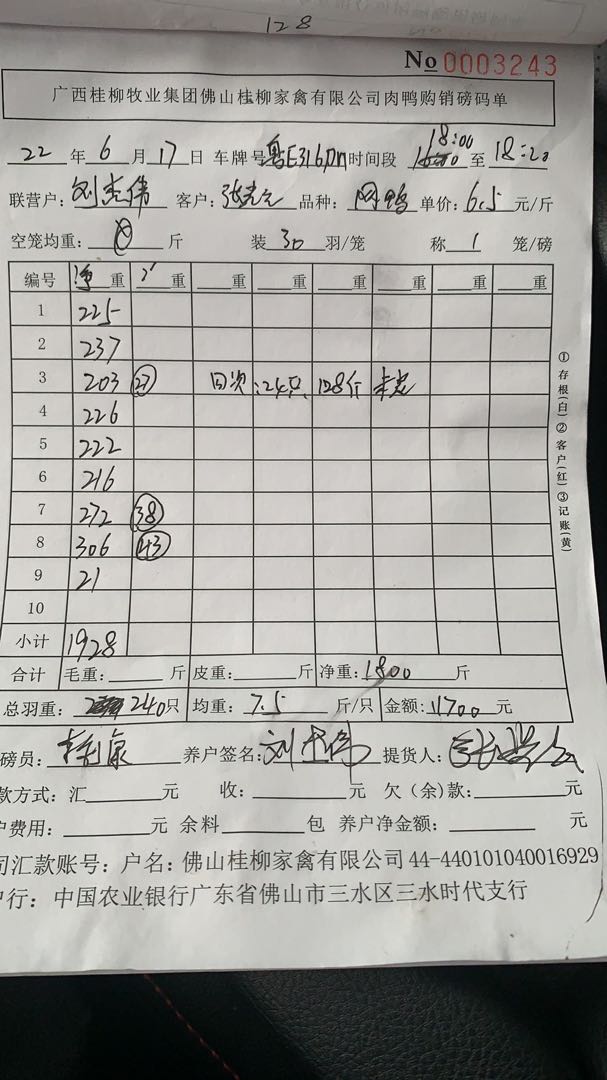 128
No 0003243
广西桂柳牧业集团佛山桂柳家禽有限公司肉鸭购销磅码单
22年6月17日 车牌号粤E316 时间段 18:00至18:20
联营户: 刘志伟 客户: 品种: 鸭 单价: 6.5元/斤
空笼均重: 斤 装30羽/笼 称1笼/磅
编号 净重 重 重 重 重 重 重 重
1 225
2 237
3 203 27 回次: 24只 128斤
4 226
5 222
6 216
7 272 38
8 306 43
9 21
10
小计 1928
合计 毛重: 斤 皮重: 斤 净重: 1800斤
总羽重: 240只 均重: 7.5斤/只 金额: 11700元
磅员: 养户签名: 刘志伟 提货人:
款方式: 汇 元 收: 元 欠(余)款: 元
户费用: 元 余料 包 养户净金额: 元
司汇款账号: 户名: 佛山桂柳家禽有限公司 44-440101040016929
户行: 中国农业银行广东省佛山市三水区三水时代支行
①存根(白)②客户(红)③记账(黄)